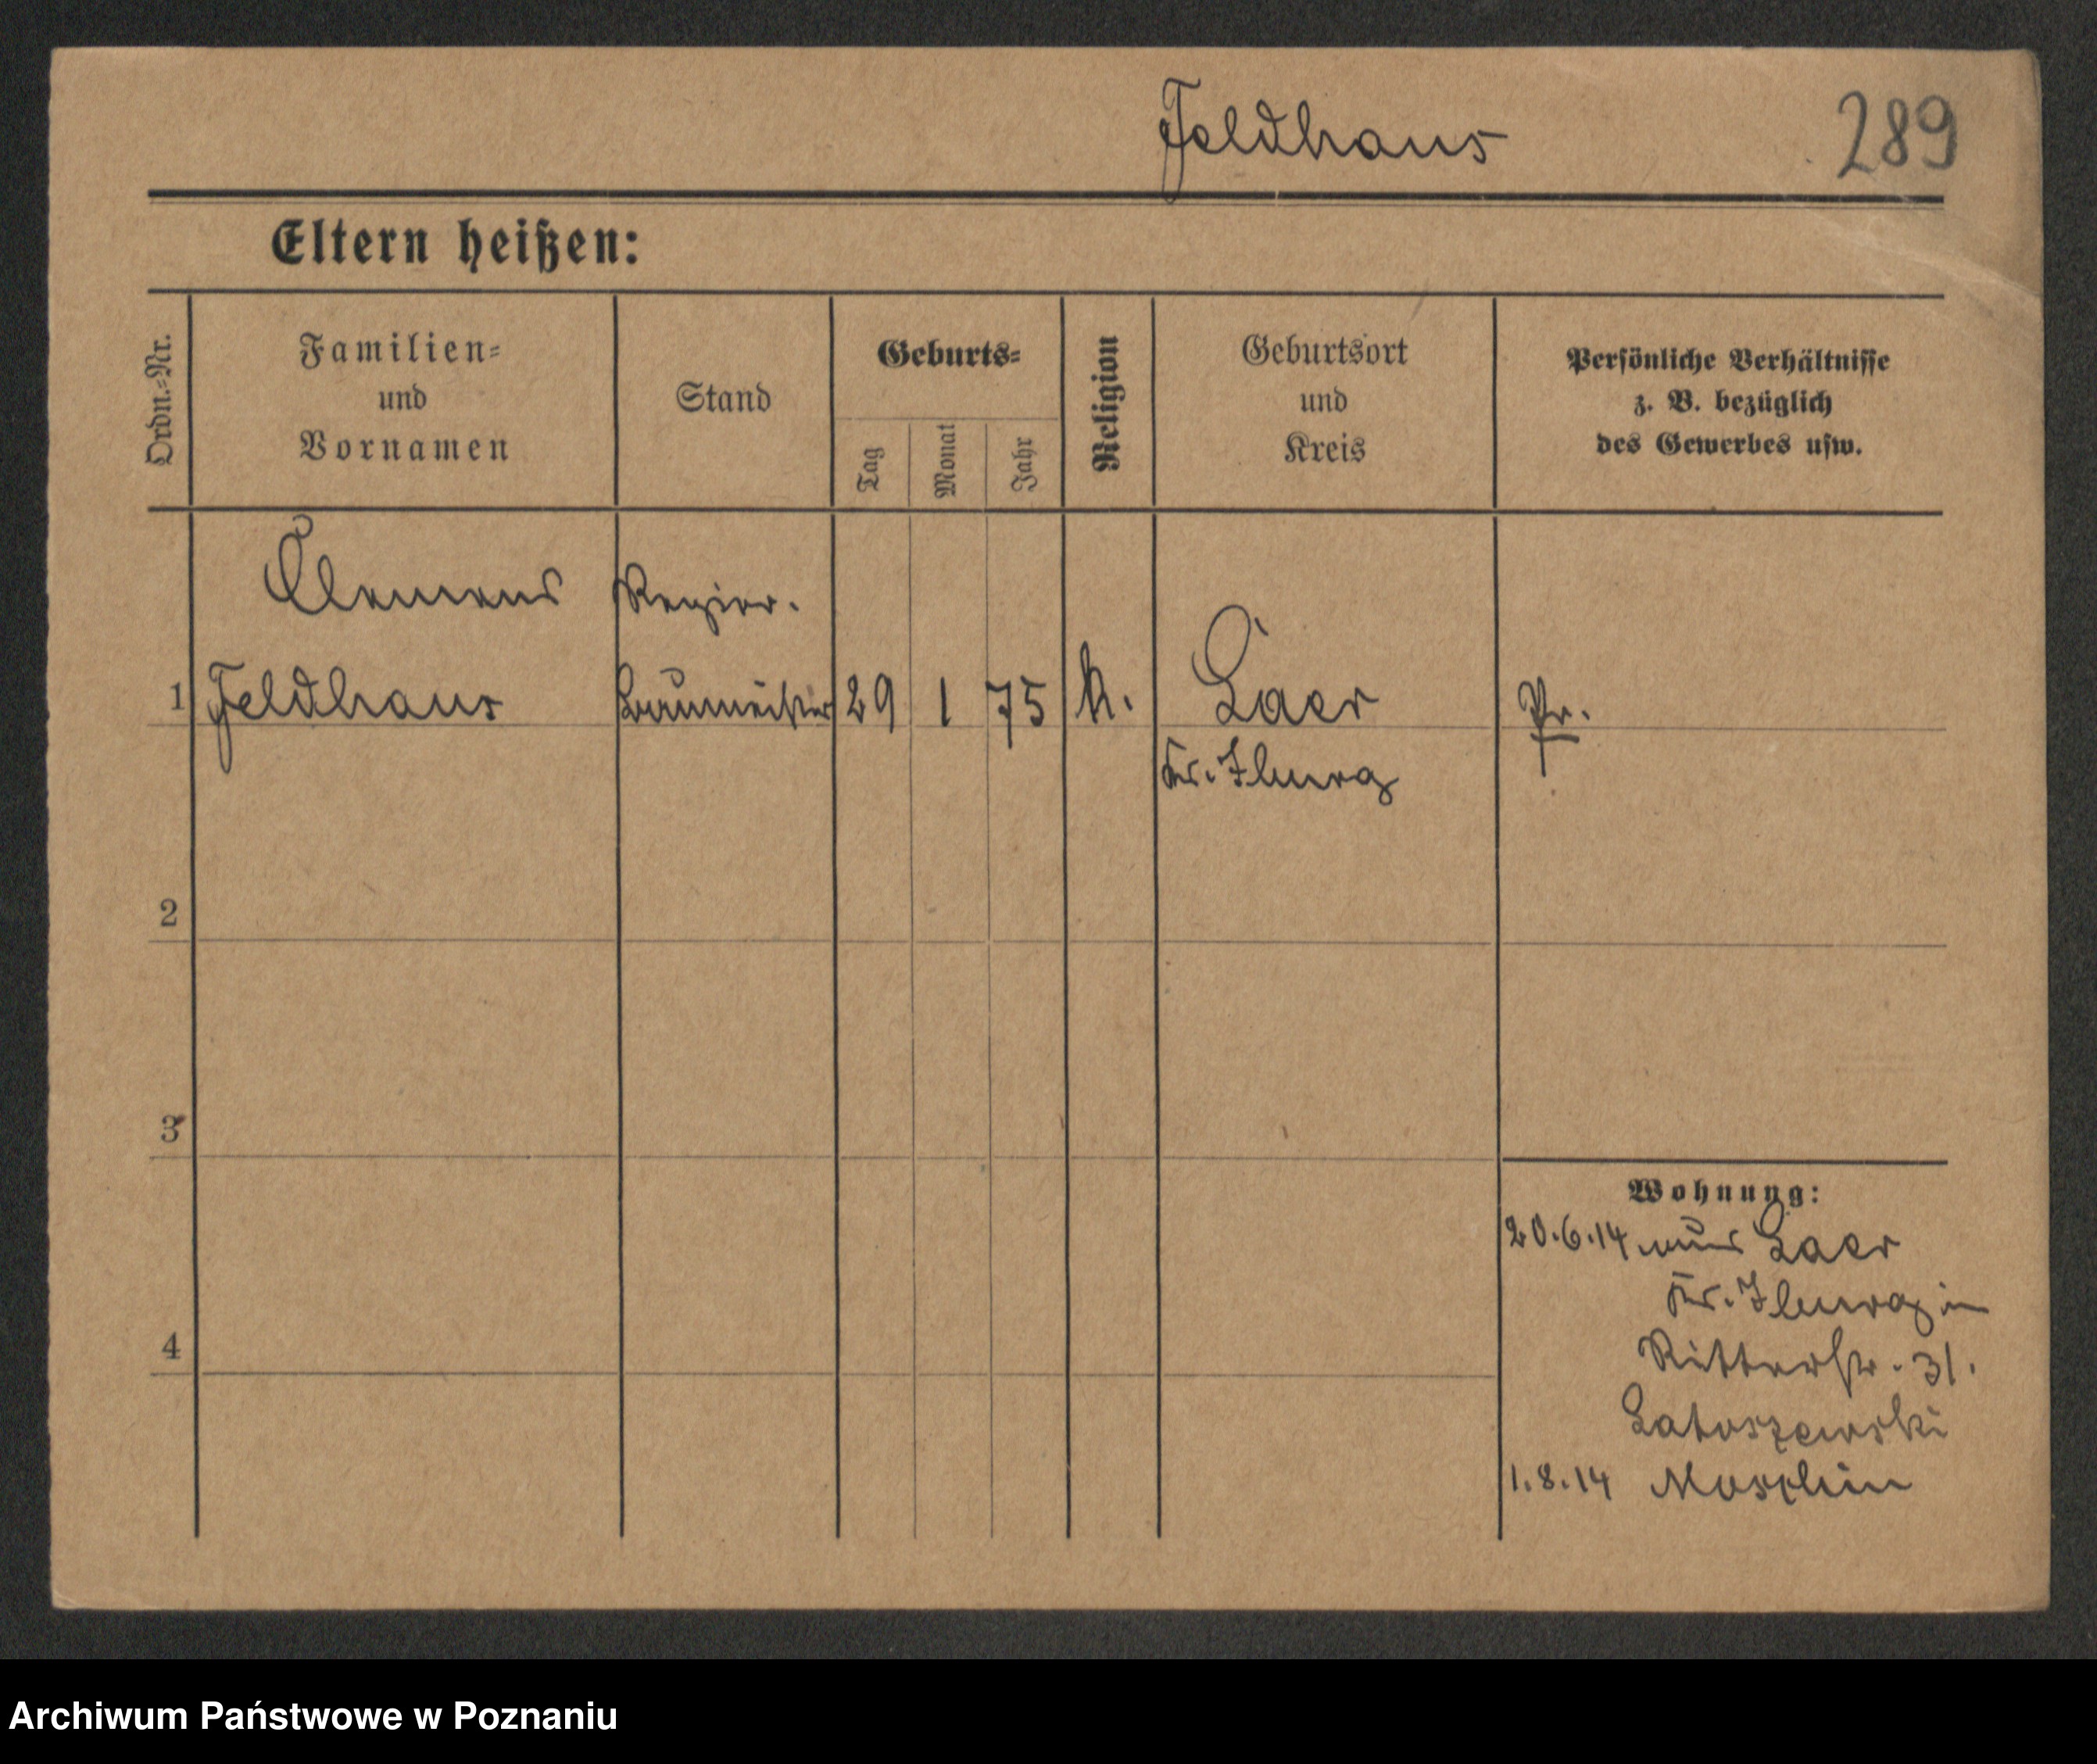 Feldhaus 289
Eltern heißen:
Ordn.-Nr.
Familien-
und
Vornamen
Stand
Geburts-
Tag
Monat
Jahr
Religion
Geburtsort
und
Kreis
Persönliche Verhältnisse
z. B. bezüglich
des Gewerbes usw.
Clemens Regier.
1 Feldhaus Baumeister 29 1 75 k. Laer Pr.
Kr. Iburg
2
3
4
Wohnung:
20.6.14 aus Laer
Kr. Iburg in
Ritterstr. 31.
Latoszewski
1.8.14 Moschin
Archiwum Państwowe w Poznaniu